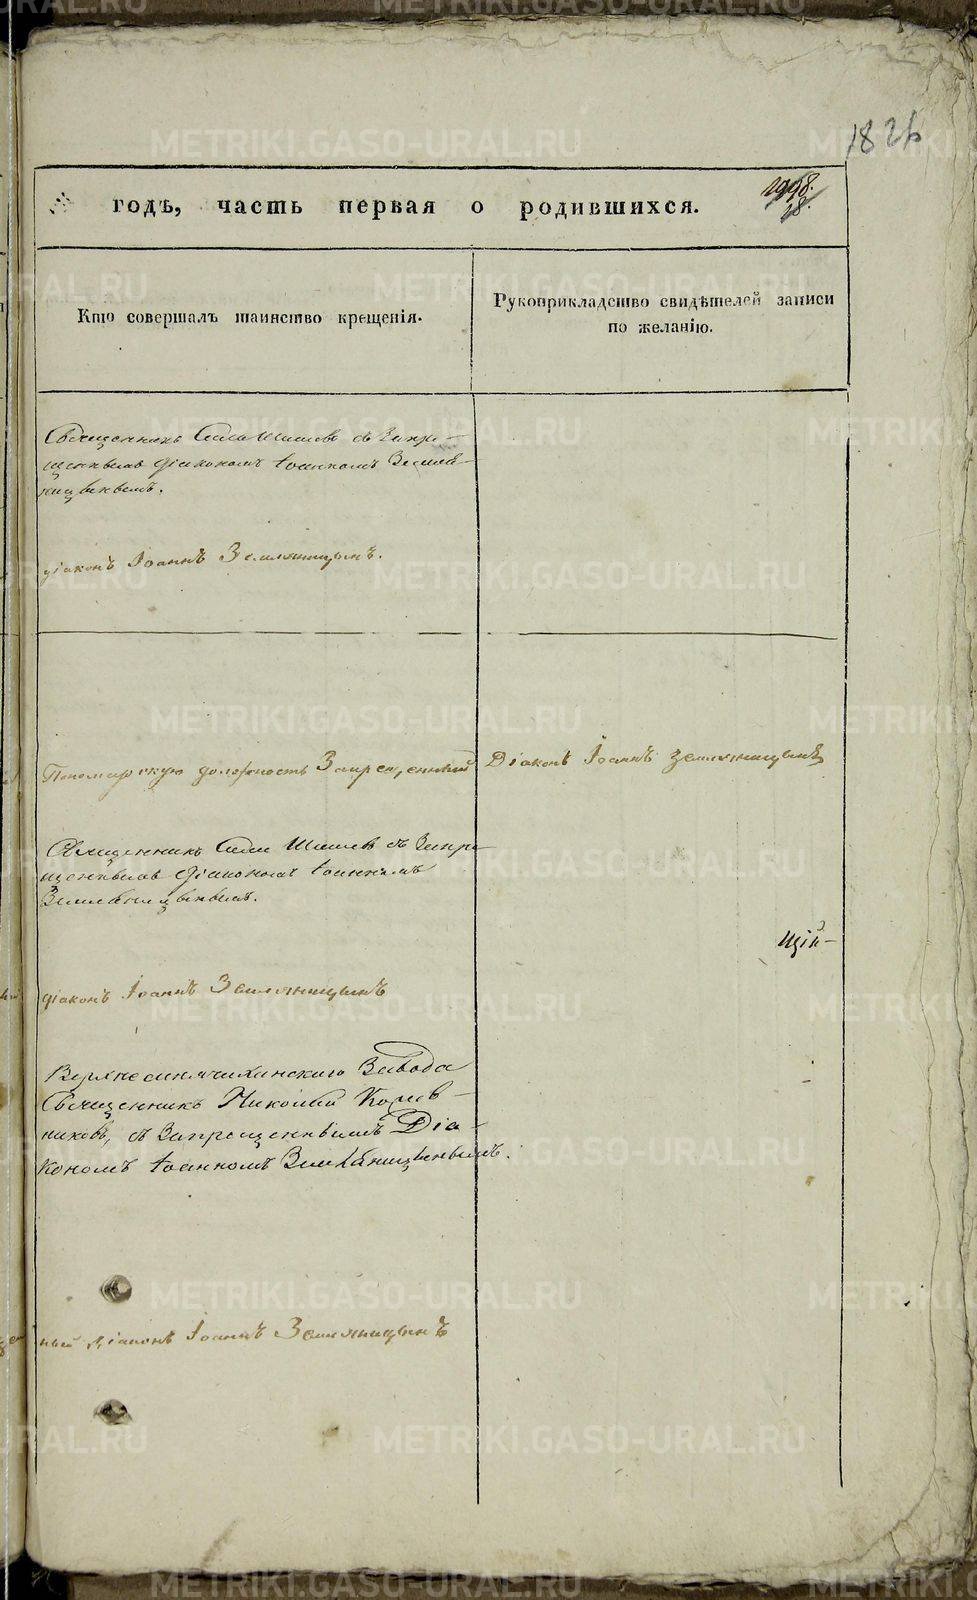 182
годъ, часть первая о родившихся.
Кто совершалъ таинство крещенія.
Рукоприкладство свидѣтелей записи
по желанію.
Священникъ Шишевъ съ Запре-
щеннымъ діакономъ Іоанномъ Земляни-
цынымъ.
діаконъ Іоаннъ Земляницынъ.
Пономарскую должность Запрещенный Діаконъ Іоаннъ Земляницынъ
Священникъ Шишевъ съ Запре-
щеннымъ діакономъ Іоанномъ
Земляницынымъ.
щій-
діаконъ Іоаннъ Земляницынъ
Верхнесинячихинскаго Завода
Священникъ Николай
съ Запрещеннымъ Діа-
кономъ Іоанномъ Земляницынымъ.
ный діаконъ Іоаннъ Земляницынъ
METRIKI.GASO-URAL.RU